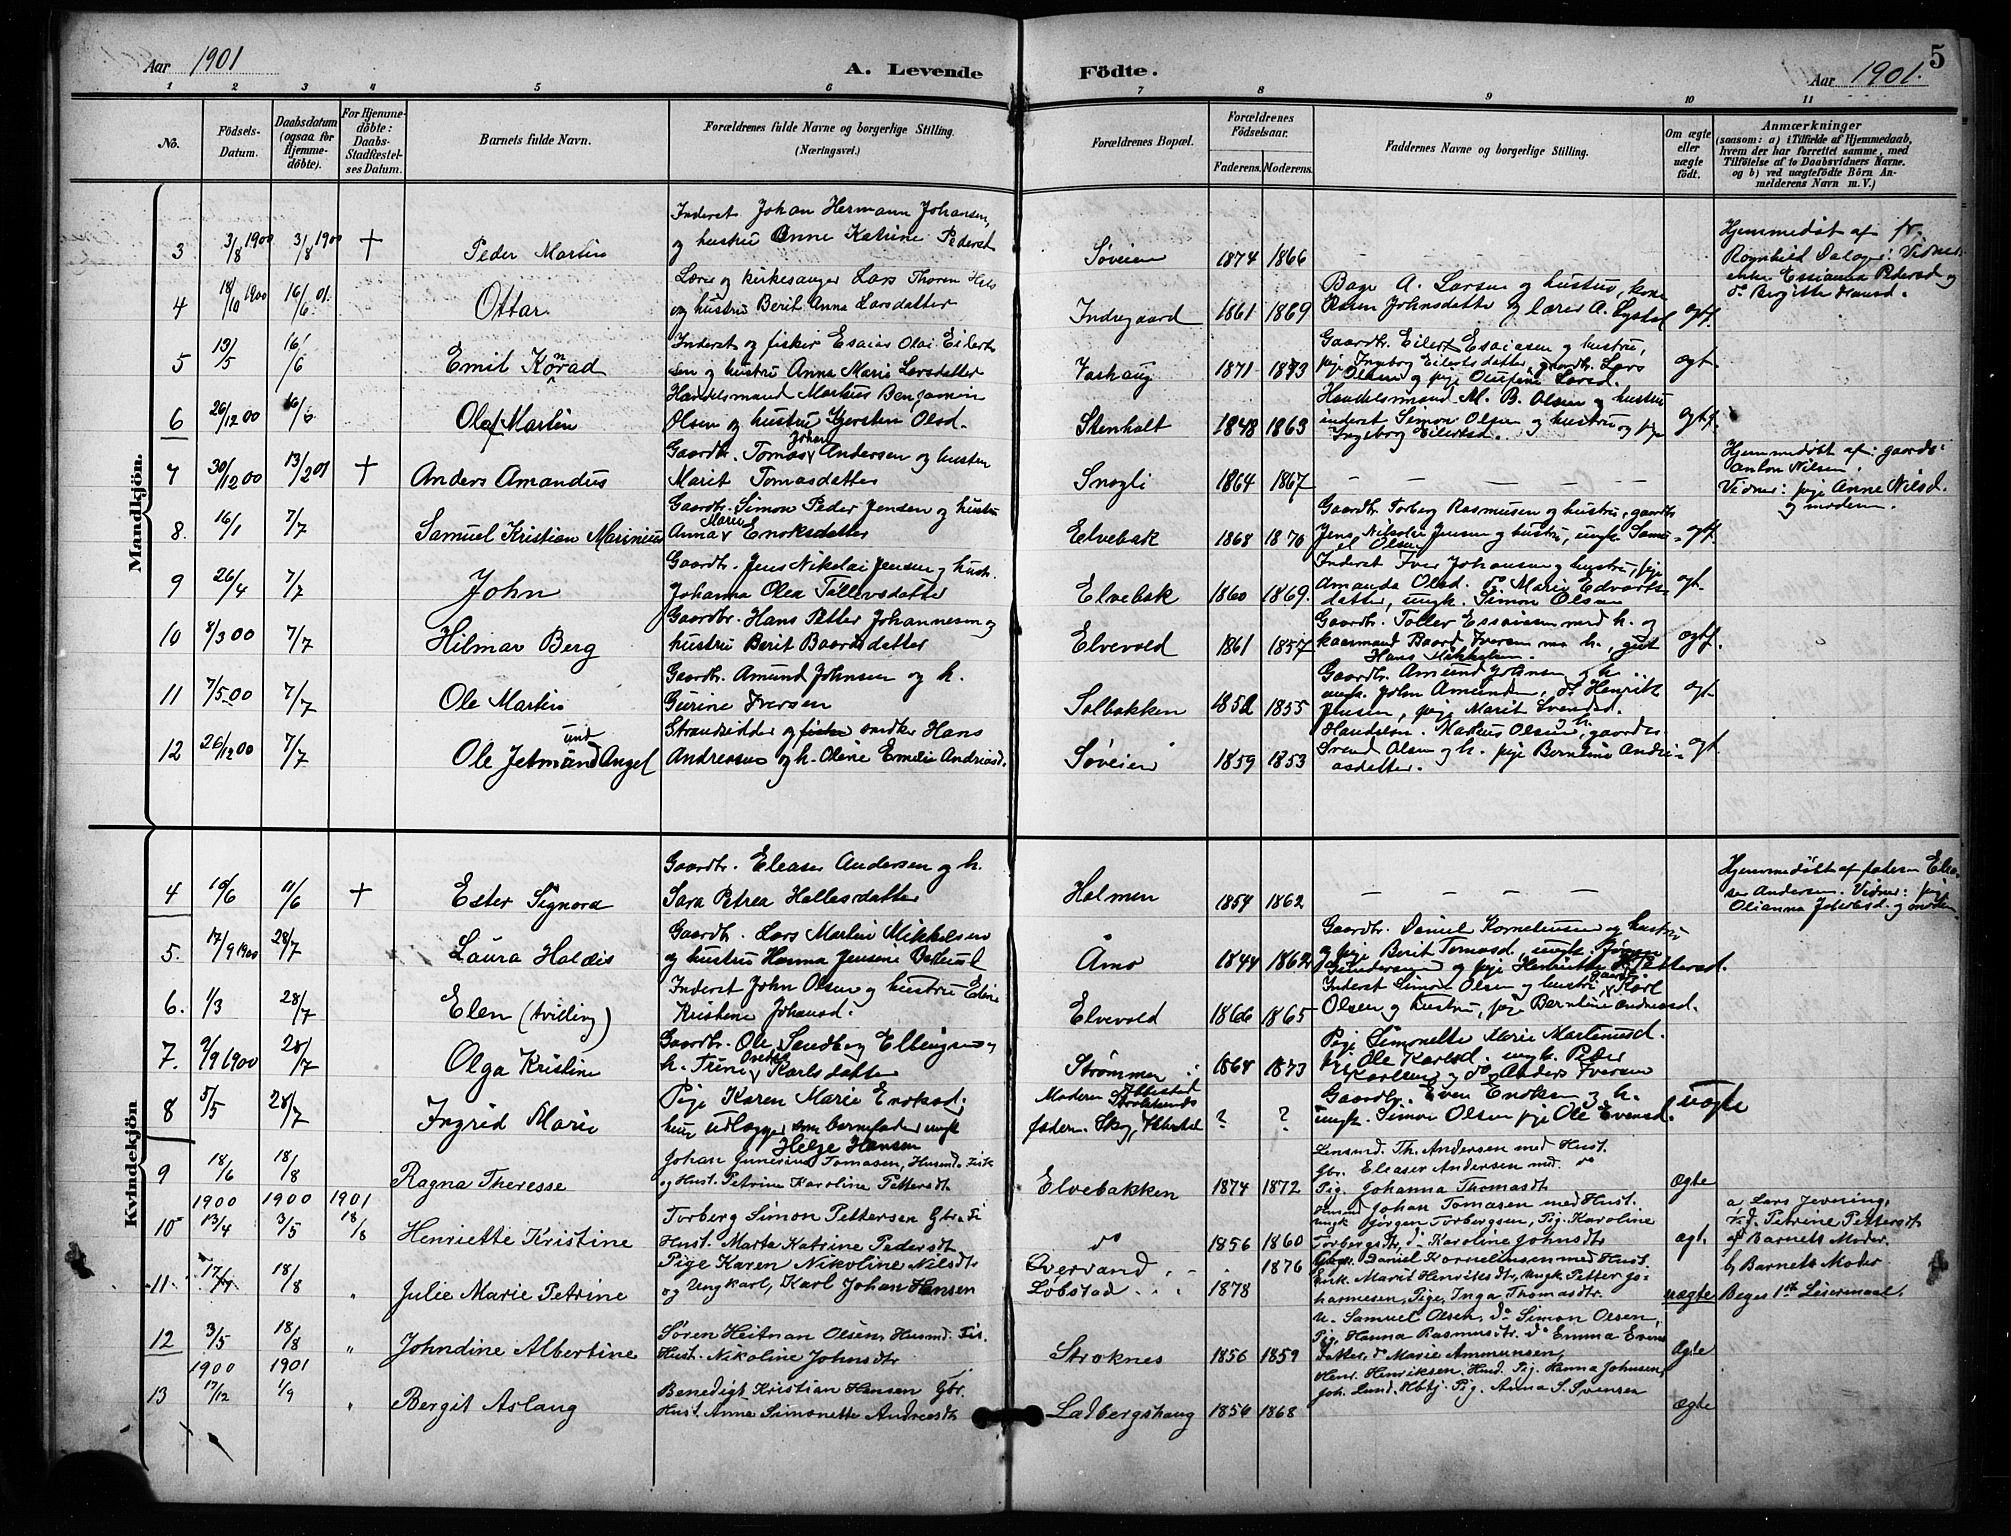 Aar 1901
A. Levende
Födte.
Aar 1901.
5
1 2 3 4 5 6 7 8 9 10 11
No.
Födsels-Datum.
Daabsdatum (ogsaa for Hjemmedöbte).
For Hjemmedöbte: Daabs-Stadfæstelses Datum.
Barnets fulde Navn.
Forældrenes fulde Navne og borgerlige Stilling.
(Næringsvei.)
Forældrenes Bopæl.
Forældrenes Födselsaar.
Faderens. Moderens.
Faddernes Navne og borgerlige Stilling.
Om ægte eller uægte födt.
Anmærkninger
(saasom: a) i Tilfælde af Hjemmedaab, hvem der har forrettet samme, med Tilföielse af to Daabsvidners Navne. og b) ved uægtefödte Börn Anmelderens Navn m. V.)
Mandkjön.
3 3/8 1900 3/8 1900 + Peder Martin
Inderst Johan Hermann Johansen,
og hustru Anne Katrine Pedersd
Søveien 1874 1866
Hjemmedøbt af fr.
Ragnhild Dalager: Vidner
enke Essianna Pedersd og
do Birgitte Hansd.
4 18/10 1900 16/6 01. Ottar
Lærer og kirkesanger Lars Thoren
og hustru Berit Anna Larsdatter
Indregaard 1861 1869
Bage A. Larsen og hustru, kone
Karen Johnsdatter og lærer A. ægt.
5 13/5 16/6 Emil Konrad
Inderst og fisker Esaias Olai Eilert-
sen og hustru Anna Marie Larsdatter
Varhaug 1871 1873
Gaardb. Eilert Esaiasen og hustru,
pige Ingeborg Eilertsdatter, gaardb. Lars
Olsen og pige Olufine Larsd. ægt.
6 26/12 00 16/6 Olaf Martin
Handelsmand Martius Benjamin
Olsen og hustru Kjersten Olsd.
Stenholt 1848 1863
Handelsmand M. B. Olsen og hustru
inderst Simon Olsen og hustru og pige
Ingeborg Eilertsd. ægt.
7 30/12 00 13/2 01 + Anders Amandus
Gaardb. Tomas Johan Andersen og hustru
Marit Tomasdatter
Snogli 1864 1867
Hjemmedøbt af: gaardb:
Anton Nilsen.
Vidner: pige Anne Nilsd.
og moderen.
8. 16/1 7/7 Samuel Kristian Marinius
Gaardb. Simon Peder Jensen og hustru
Anna Marie Enoksdatter
Elvebak 1868 1870
Gaardb. Torberg Rasmusen og hustru, gaardb
Jens Nikolai Jensen og hustru, ungk. Samu-
el Olsen ægt.
9 26/4 7/7 John
Gaardb. Jens Nikolai Jensen og hust.
Johanna Olea Tollevsdatter
Elvebak 1860 1869.
Inderst Iver Johansen og hustru, pige
Amanda Olsd. do Marie Edvards-
datter, ungk. Simon Olsen ægt.
10 8/3 00 7/7 Hilmar Berg
Gaardb. Hans Petter Johannesen og
hustru Berit Baardsdatter
Elvevold 1861 1857
Gaardb. Toller Essaiasen med h. og
kaarmand Baard Iversen m h., gut
Hans Mikkelsen. ægt.
11 7/5 00 7/7 Ole Martin
Gaardb. Amund Johnsen og h.
Gurine Iversen
Solbakken 1852 1855
Gaardb. Amund Johnsen og h.
ungk. John Amundsen, do Henrik
Jensen, pige Marit Svendsd. ægt.
12 26/12 00 7/7 Ole Jetmund Angel
Strandsidder og snedker Hans
Andreasen og h. Oline Emelie Andreasd.
Søveien 1859 1853
Handelsm. Markus Olsen og h., gaardb
Svend Olsen og h. pige Berntine Andre-
asdatter. ægt.
Kvindekjön
4 10/6 11/6 + Ester Signora
Gaardb. Eleaser Andersen og h.
Sara Petrea Hallesdatter
Holmen 1854 1862
Hjemmedøbt af faderen Elea-
ser Andersen. Vidner: pige
Olianna og moderen
5. 17/9 1900 28/7 Laura Haldis
Gaardb. Lars Martin Mikkelsen
og hustru Hanna Jensine
Åmo 1844 1862
Gaardb. Daniel Korneliusen og hustru
og pige Berit Tomasd, ungk. Jørgen
Gundersen og pige Henriette Pettersd.
6. 1/3 28/7 Elen (tvilling)
Inderst John Olsen og hustru Eline
Kristine Johansd.
Elvevold 1866 1865
Inderst Simon Olsen og hustru, gaardb. Karl
Olsen og hustru, pige Berntine Andreasd.
7. 9/9 1900 28/7 Olga Kristine
Gaardb. Ole Sandberg Ellingsen og
h. Trine Karlsdatter
Strømmen 1864 1873
Pige Simonette Marie Martinusd.
pige Ole Karlsd. ungk. Peder
Karlsen og do Anders Iversen
8 5/5 28/7 Ingrid Marie
Pige Karen Marie Enoksd.
hun udlægger som barnefader ungk
Helge Hansen
Moderen
faderen Skog, ? ?
Gaardb. Even Enoksen og h.
ungk. Simon Olsen pige Ole Evensd. uægte
9 18/6 18/8 Ragna Theresse
Johan Tomasen, Husmd. Fisk
og Hust. Petrine Karoline Pettersdt
Elvebakken 1874 1872
Th. Andersen med Hust.
Gbr. Eleaser Andersen med do
Pig. Johanna Thomasdt ægte
10 1900 13/4 1900 3/5 1901 18/8 Henriette Kristine
Torberg Simon Pettersen Gbr. Fi
Hust. Marta Katrine Pedersdt
do 1856 1860
Johan Tomasen med Hust.
Ungk Jørgen Torbergsen, Pig. Karoline
Torbergsdtr, do Karoline Johnsdtr ægt.
a, Lars
Vid. Petrine Pettersdt
og Barnets Moder.
11 18/8 " Julie Marie Petrine
Pige Karen Nikoline Nilsdt
og Ungkarl, Karl Johan Hansen
Øvervand 1876
Løbstad 1878
Daniel Korneliusen med Hust.
Marit Henriksdtr, Ungk Petter Jo-
hannesen, Pige, Inga Thomasdtr. uægte
b, Barnets Moder
Beges 1ste Leiermaal.
12 3/5 18/8 " Johndine Albertine
Søren Heitman Olsen, Husmd. Fis.
Hust. Nikoline Johnsdtr
Stroknes 1856 1859
U. Samuel Olsen, do Simon Olsen,
Pig. Hanna Rasmusdtr. do Emma Evens
datter, do Marie Ammunsen, Ægte
13 1900 17/12 1901 1/9 " Bergit Aslaug
Benedigt Kristian Hansen Gbr.
Hust. Anne Simonette Andreasdt
Ladbergshaug 1856 1868
Henr. Henriksen, Husd. Pig. Hanna Johnsen,
Joh. Lund. Hbtj. Pig. Anna S. Svensen Ægte